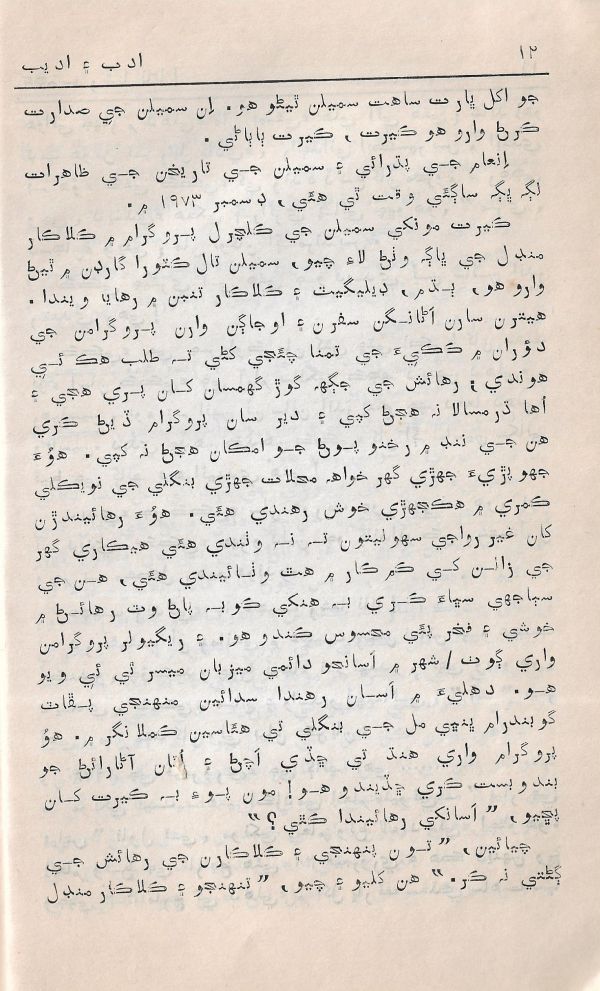 ١٢
ادب ۽ اديب
جو اکل ڀارت ساهت سميلن ٿيڻو هو. اِن سميلن جي صدارت
ڪرڻ وارو هو ڪيرت، ڪيرت ٻاٻاڻي.
اِنعام جي پڌرائي ۽ سميلن جي تاريخن جي ظاهرات
لڳ ڀڳ ساڳئي وقت ٿي هئي، ڊسمبر ١٩٧٣ ۾.
ڪيرت مونکي سميلن جي ڪلچرل پروگرام ۾ ڪلاڪار
منڊل جي ڀاڱ وٺڻ لاءِ چيو، سميلن تال ڪٽورا گارڊن ۾ ٿيڻ
وارو هو، ٻڌم، ڊيليگيٽ ۽ ڪلاڪار تنبن ۾ رهايا ويندا.
هيترن سارن اُٿانگن سفرن ۽ اوجاڳن وارن پروگرامن جي
دؤران ۾ ڪڪيءَ جي تمنا چئجي کڻي ته طلب هڪ ئي
هوندي؛ رهائش جي جڳهه گوڙ گهمسان کان پري هجي ۽
اُها ڌرمسالا نه هجڻ کپي ۽ دير سان پروگرام ڏيڻ ڪري
هن جي ننڊ ۾ رخنو پوڻ جو امڪان هجڻ نه کپي. هوءَ
جهوپڙيءَ جهڙي گهر خواهه محلات جهڙي بنگلي جي نويڪلي
ڪمري ۾ هڪجهڙي خوش رهندي هئي. هوءَ رهائيندڙن
کان غير رواجي سهوليتون ته نه وٺندي هئي هيڪاري گهر
جي زالن کي ڪم ڪار ۾ هٿ ونڊائيندي هئي، هن جي
سٻاجهي سڀاءَ ڪري به هنکي ڪوبه پاڻ وٽ رهائڻ ۾
خوشي ۽ فخر پئي محسوس ڪندو هو. ۽ ريگيولر پروگرامن
واري ڳوٺ/شهر ۾ اَسانجو دائمي ميزبان ميسر ٿي ئي ويو
هو. دهليءَ ۾ اَسان رهندا سدائين منهنجي ڀقات
گوبندرام ڀنڀي مل جي بنگلي تي هئاسين ڪملا نگر ۾. هوُ
پروگرام واري هنڌ تي ڇڏي اَچڻ ۽ اُتان آڻارائڻ جو
بندوبست ڪري ڇڏيندو هو! مون پوءِ به ڪيرت کان
پڇيو، ”اَسانکي رهائيندا ڪٿي؟“
چيائين، ”تون پنهنجي ۽ ڪلاڪارن جي رهائش جي
ڳڻتي نه ڪر.“ هن کليو ۽ چيو، ”تنهنجو ۽ ڪلاڪار منڊل